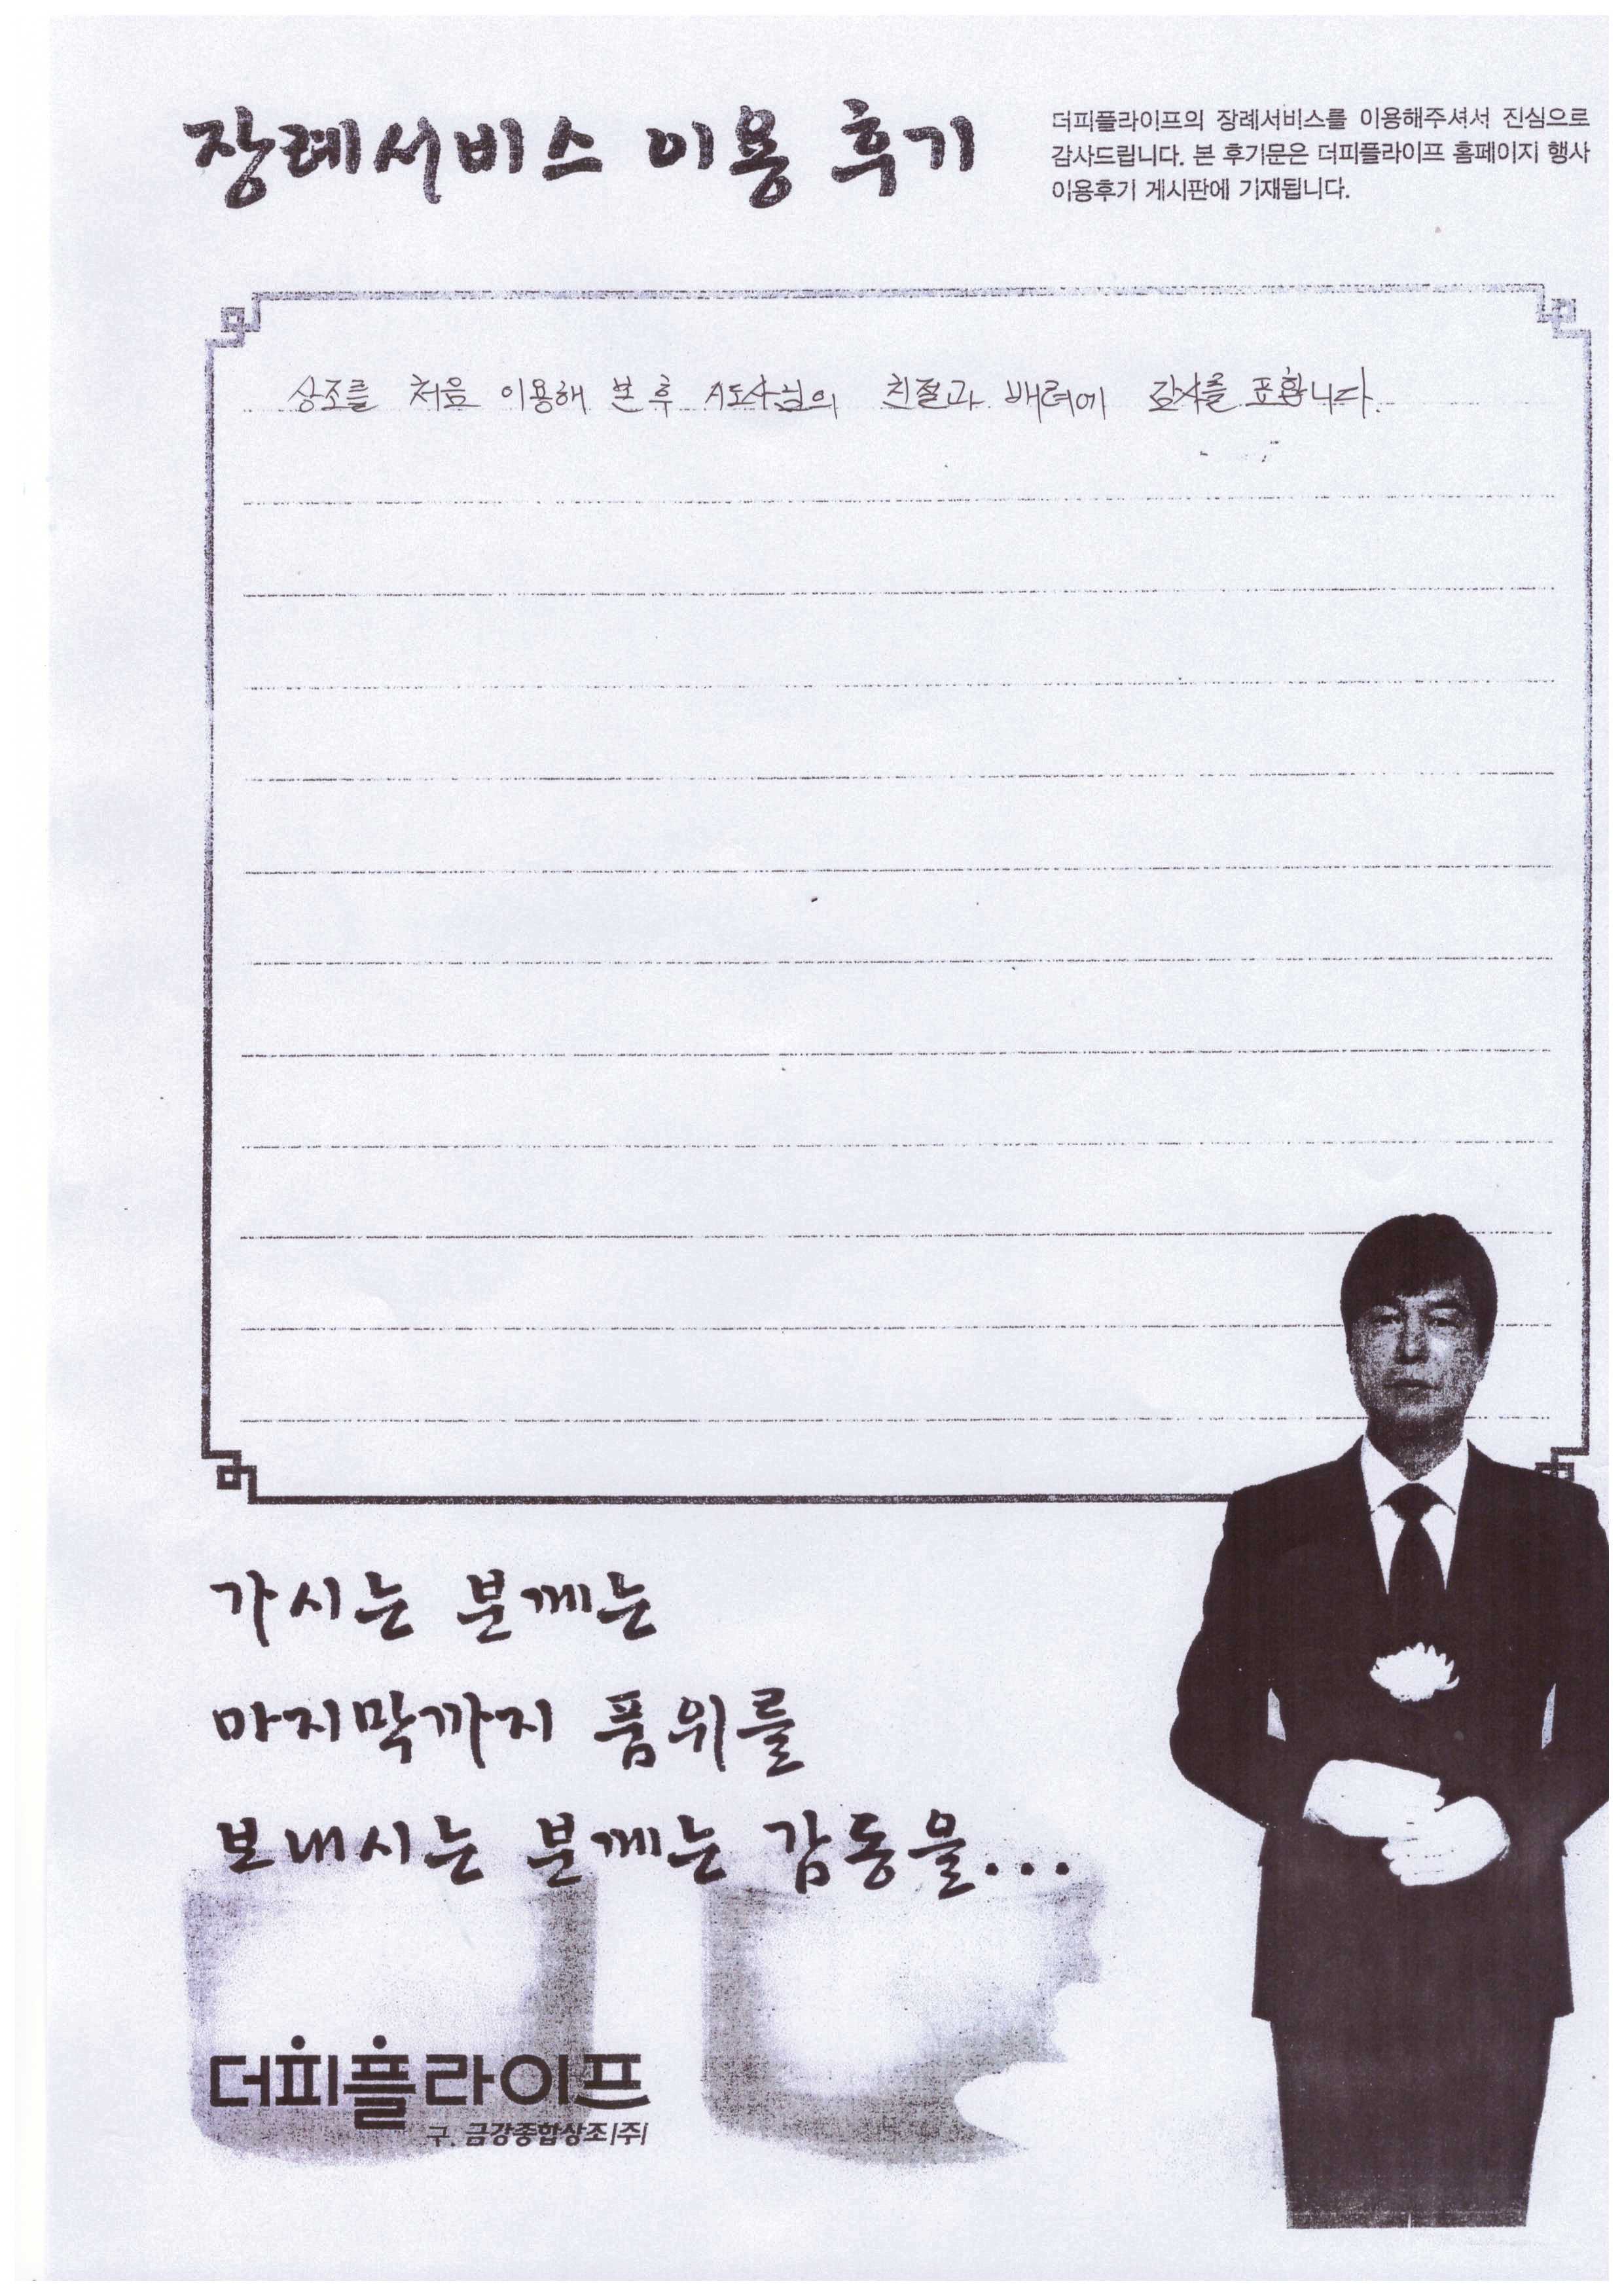 장례서비스 이용 후기
더피플라이프의 장례서비스를 이용해주셔서 진심으로
감사드립니다. 본 후기문은 더피플라이프 홈페이지 행사
이용후기 게시판에 기재됩니다.
상조를 처음 이용해 본 후 지도사님의 친절과 배려에 감사를 표합니다.
가시는 분께는
마지막까지 품위를
보내시는 분께는 감동을...
더피플라이프
구. 금강종합상조|주|